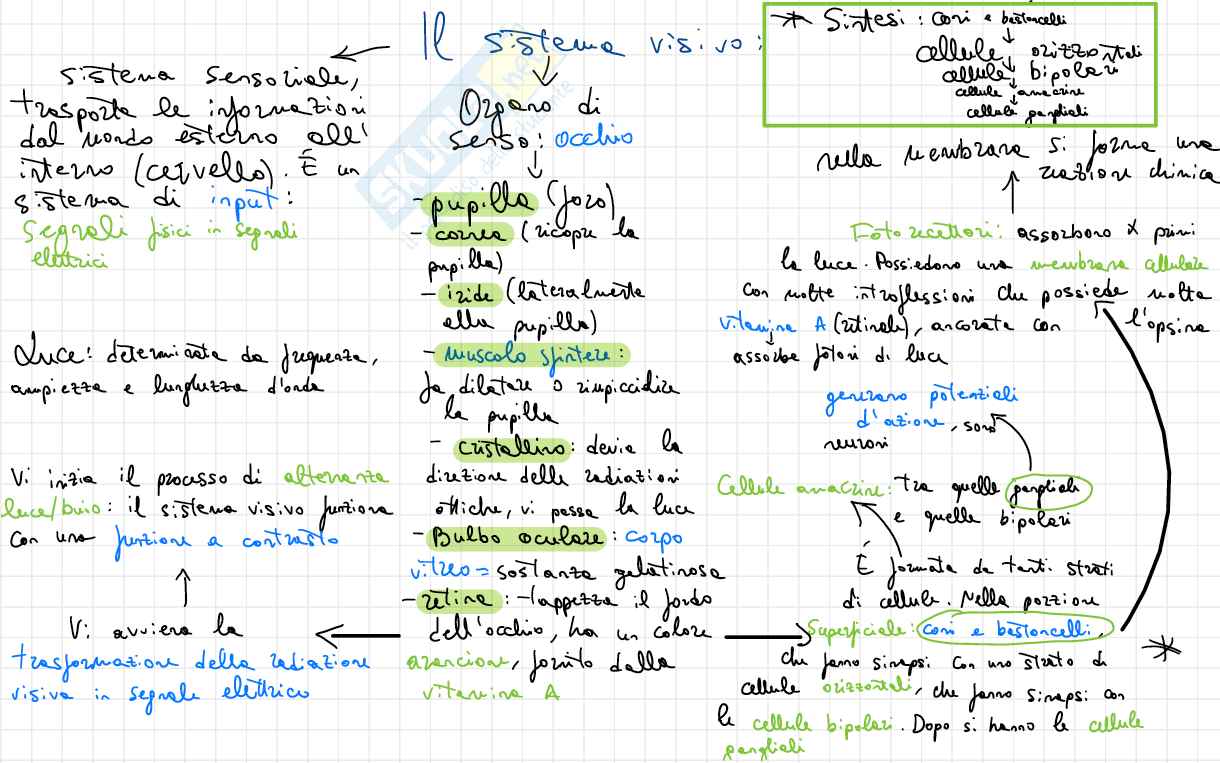 Il sistema visivo:
sistema sensoriale,
trasporta le informazioni
dal mondo esterno all'
interno (cervello). È un
sistema di input:
segnali fisici in segnali
elettrici
Luce: determinata da frequenza,
ampiezza e lunghezza d'onda
Vi inizia il processo di alternanza
luce/buio: il sistema visivo funziona
con una funzione a contrasto
Vi avviene la
trasformazione della radiazione
visiva in segnale elettrico
Organo di
senso: occhio
- pupilla (foro)
- cornea (ricopre la
pupilla)
- iride (lateralmente
alla pupilla)
- muscolo sfintere:
fa dilatare o rimpiccidire
la pupilla
- cristallino: devia la
direzione delle radiazioni
ottiche, vi passa la luce
- Bulbo oculare: corpo
vitreo = sostanza gelatinosa
- retina: tappezza il fondo
dell'occhio, ha un colore
arancione, fornito dalla
vitamina A
* Sintesi: coni e bastoncelli
cellule orizzontali
cellule bipolari
cellule amacrine
cellule gangliali
nella membrana si forma una
reazione chimica
Fotorecettori: assorbono x primi
la luce. Possiedono una membrana cellulare
con molte introflessioni che possiede molta
vitamina A (retinale), ancorata con l'opsina
assorbe fotoni di luce
generano potenziali
d'azione, sono
neuroni
Cellule amacrine: tra quelle gangliali
e quelle bipolari
È formata da tanti strati
di cellule. Nella porzione
superficiale: coni e bastoncelli, *
che fanno sinapsi con uno strato di
cellule orizzontali, che fanno sinapsi con
le cellule bipolari. Dopo si hanno le cellule
gangliali